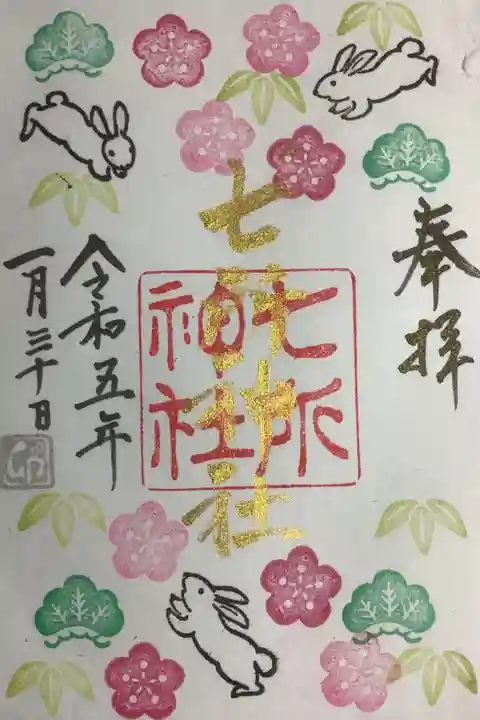 奉拝
七所神社
七所
神社
令和五年
一月三十日